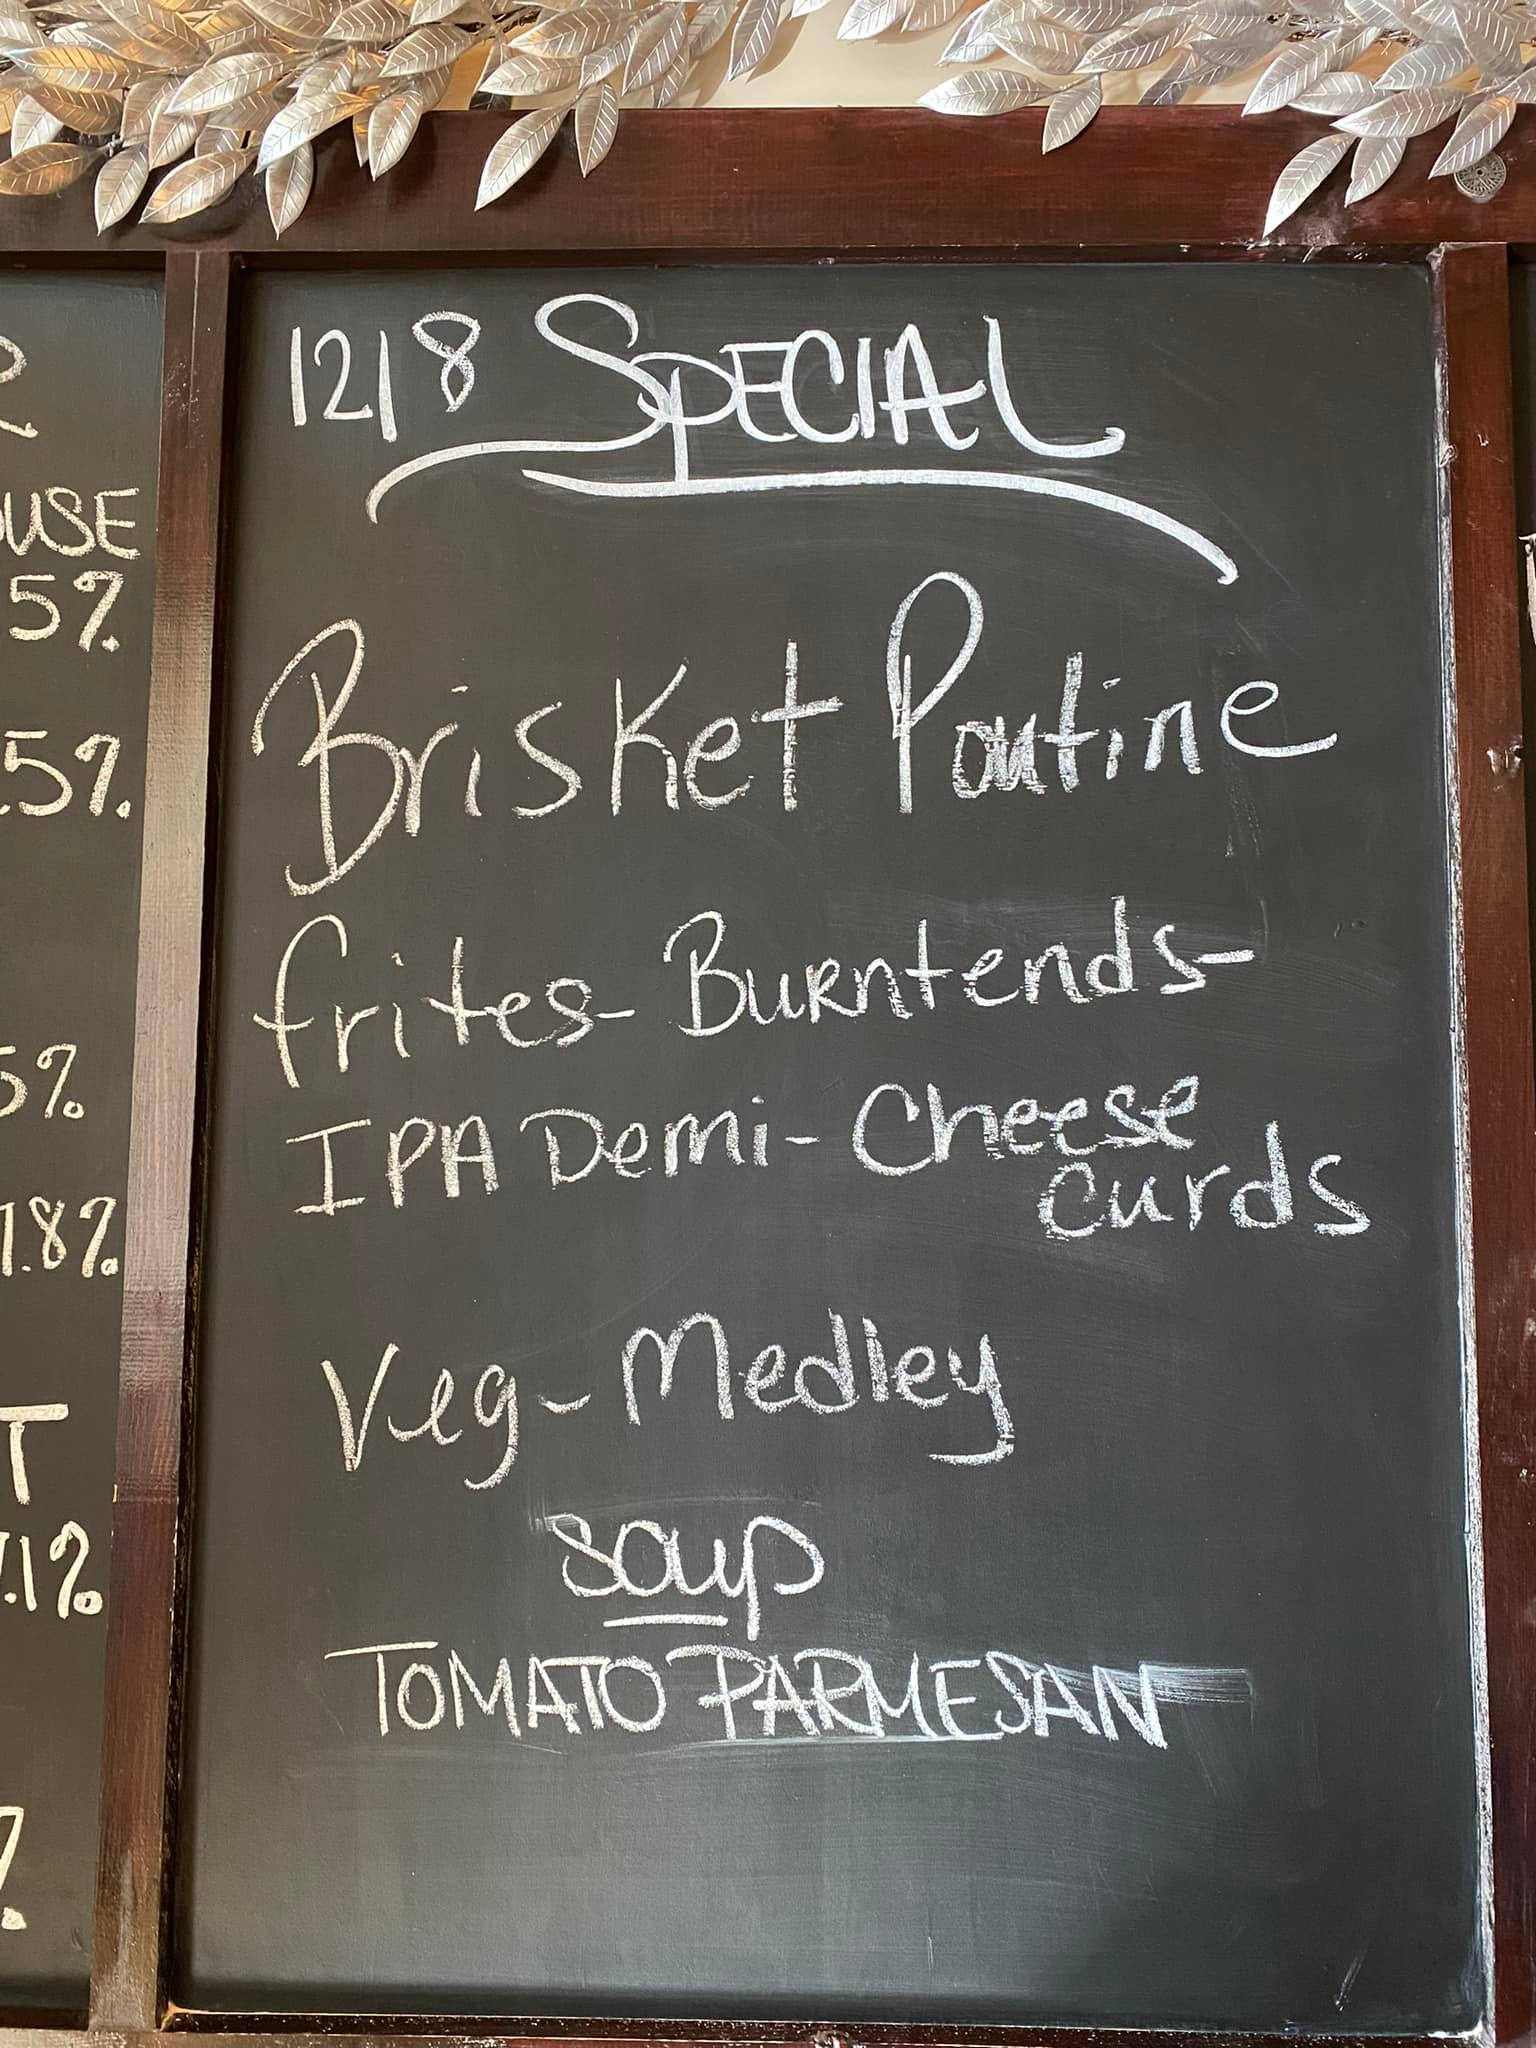 R
OUSE
5%
.5%
5%
1.8%
T
.1%
%
1218 SPECIAL
Brisket Poutine
frites- Burntends-
IPA Demi- Cheese
curds
Veg-Medley
soup
TOMATO PARMESAN